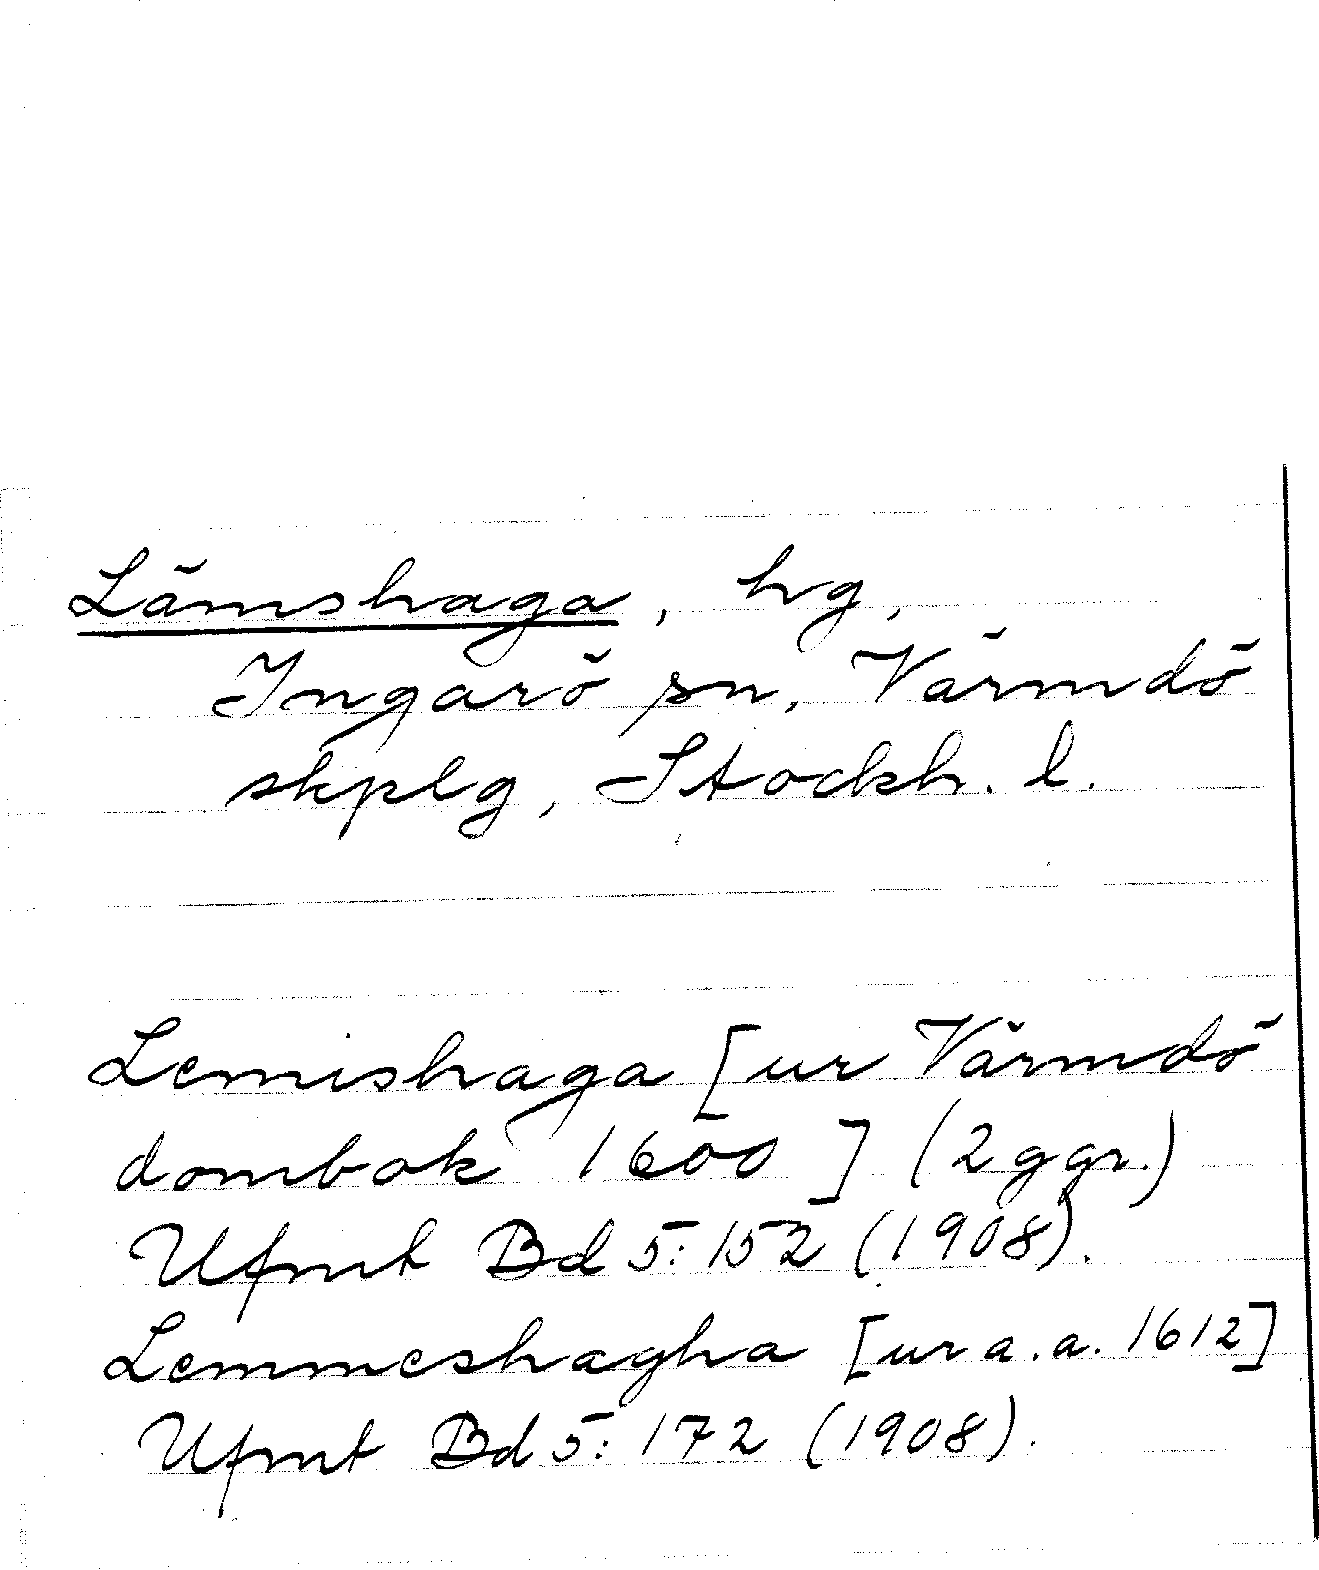 Lämshaga, hg,
Ingarö sn, Värmdö
skplg, Stockh. l.
Lemishaga [ur Värmdö
dombok 1600] (2 ggr.)
Ufmt Bd 5: 152 (1908).
Lemmeshagha [ur a.a. 1612]
Ufmt Bd 5: 172 (1908).